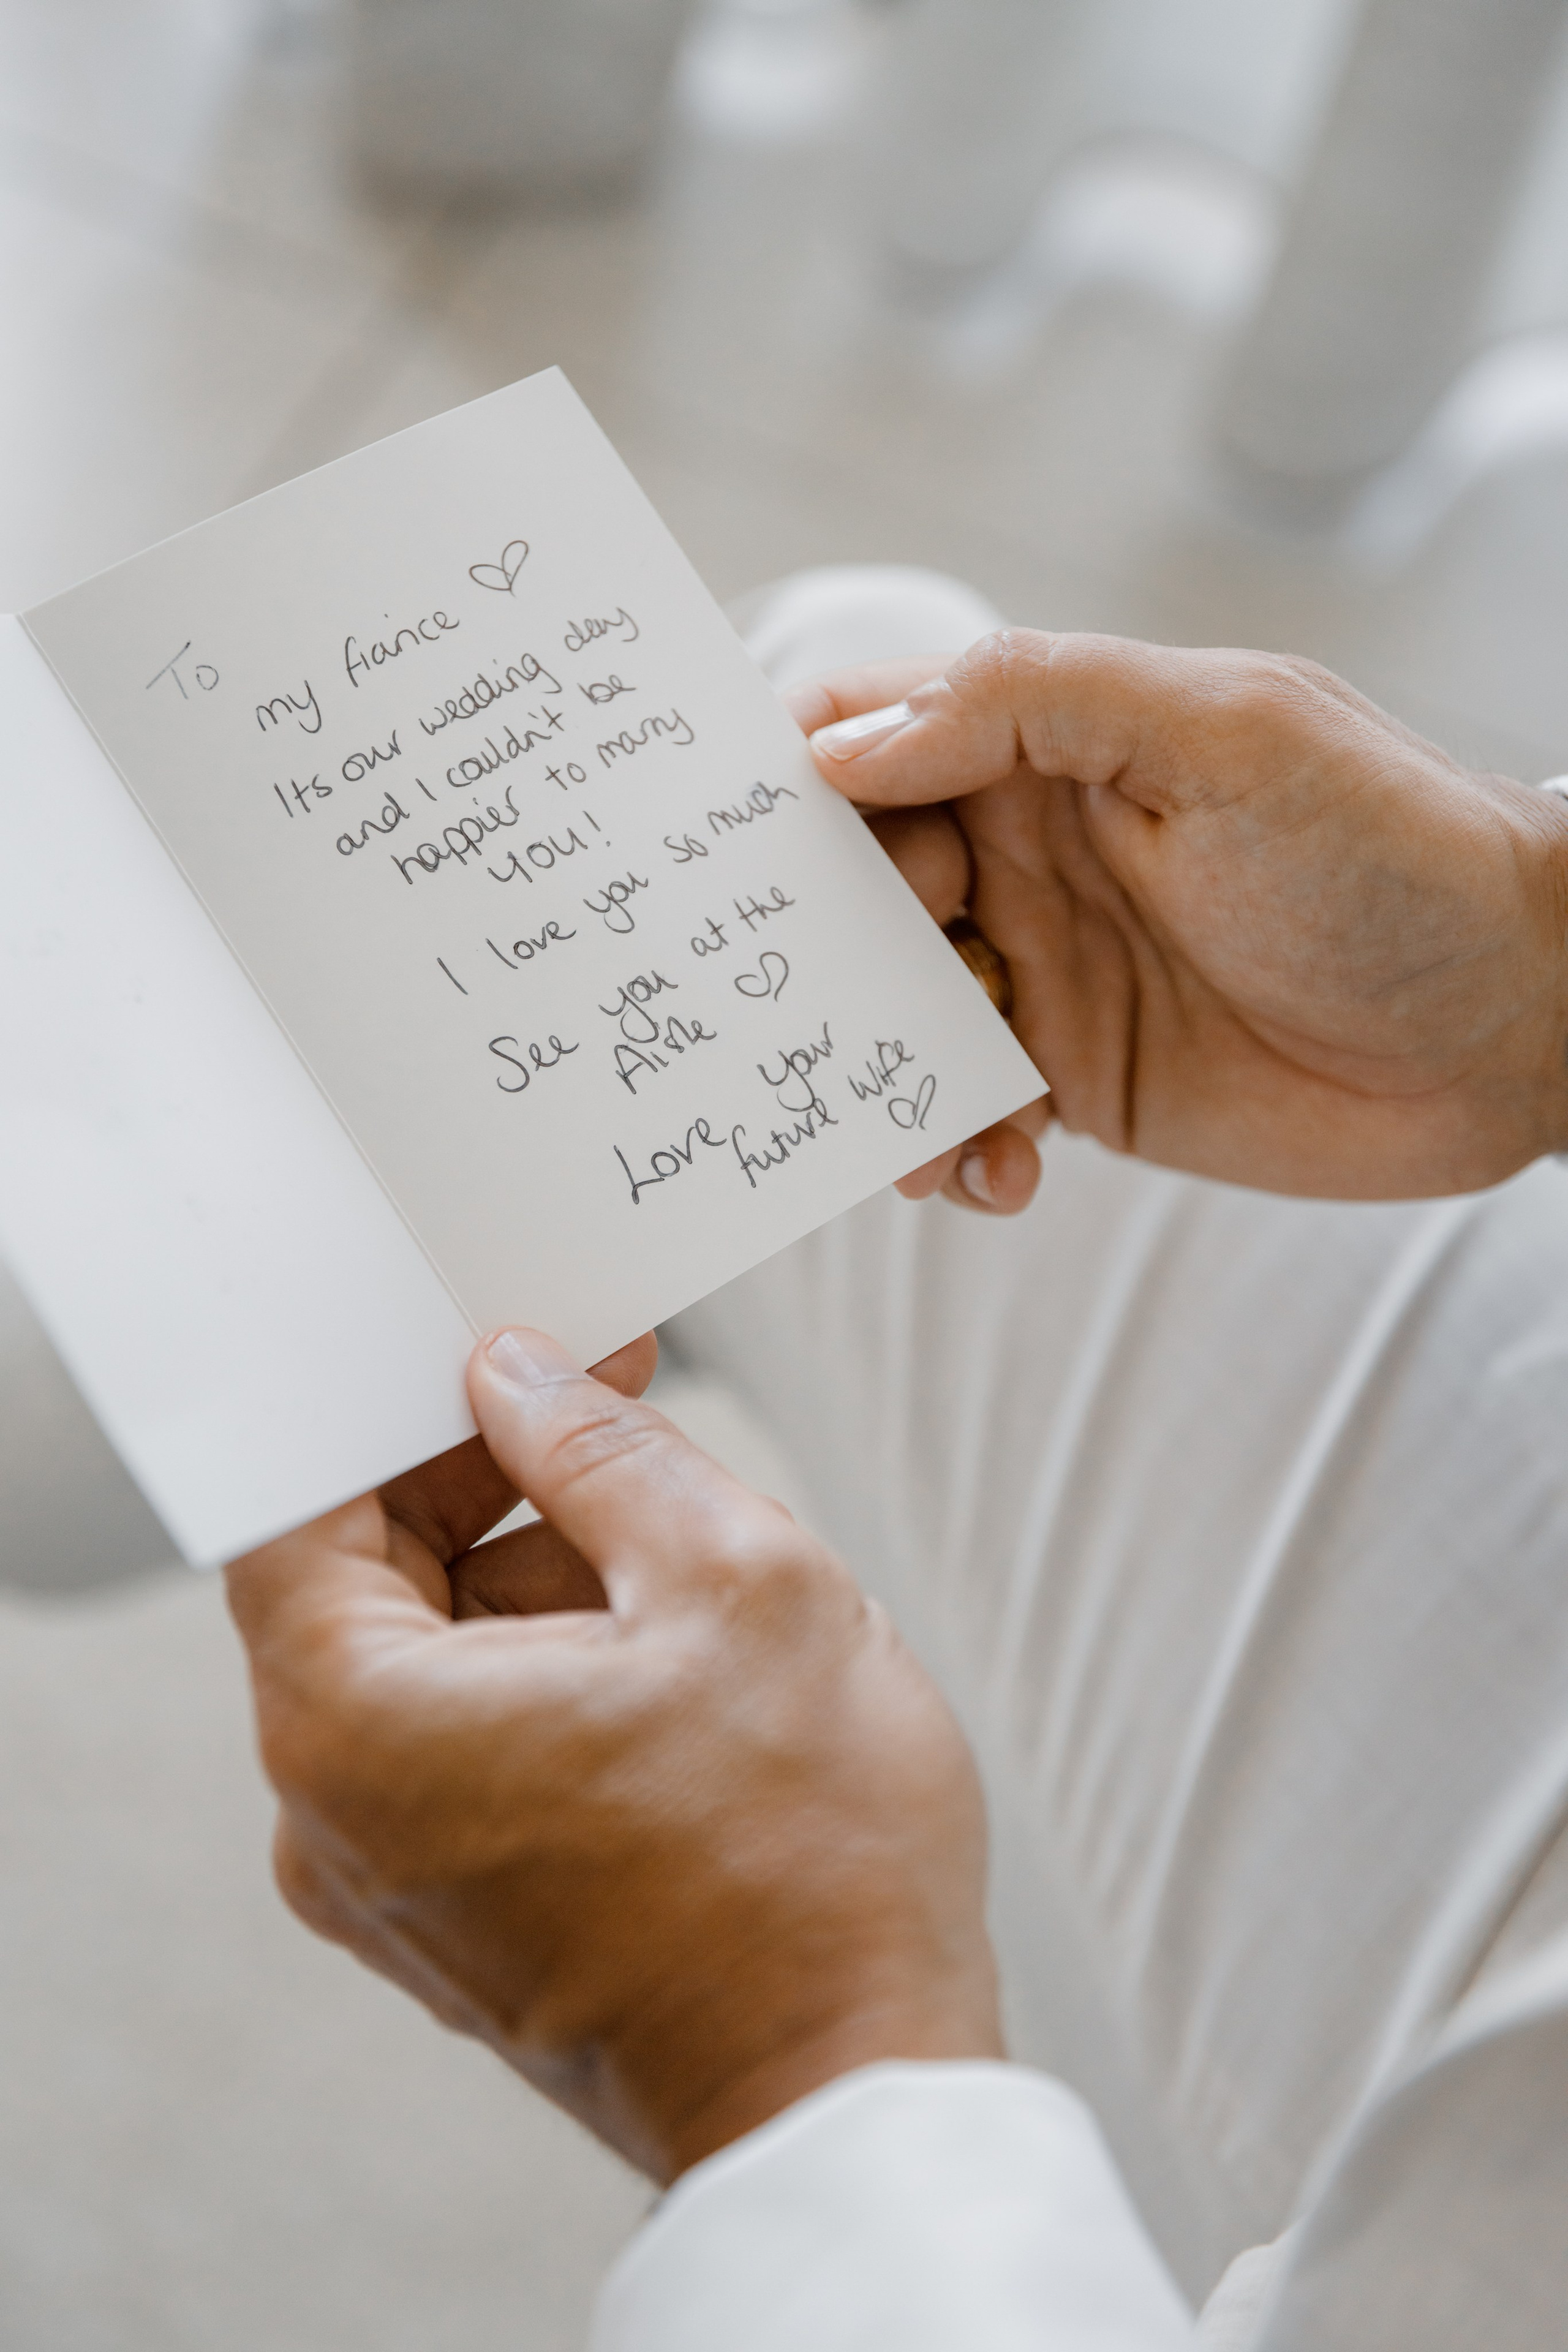 To
my fiance ♡
Its our wedding day
and I couldn't be
happier to marry
YOU!
I love you so much
See you at the
Aisle ♡
Love your
future wife
♡